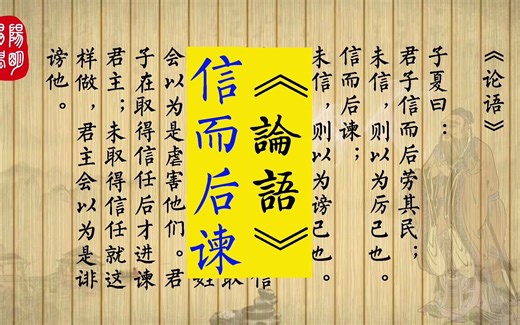 陽明
《论语》
子夏曰：
君子信而后劳其民；
未信，则以为厉己也。
信而后谏；
未信，则以为谤己也。
《論語》
信而后谏
会以为是虐害他们。君
子在取得信任后才进谏
君主；未取得信任就这
样做，君主会以为是诽
谤他。